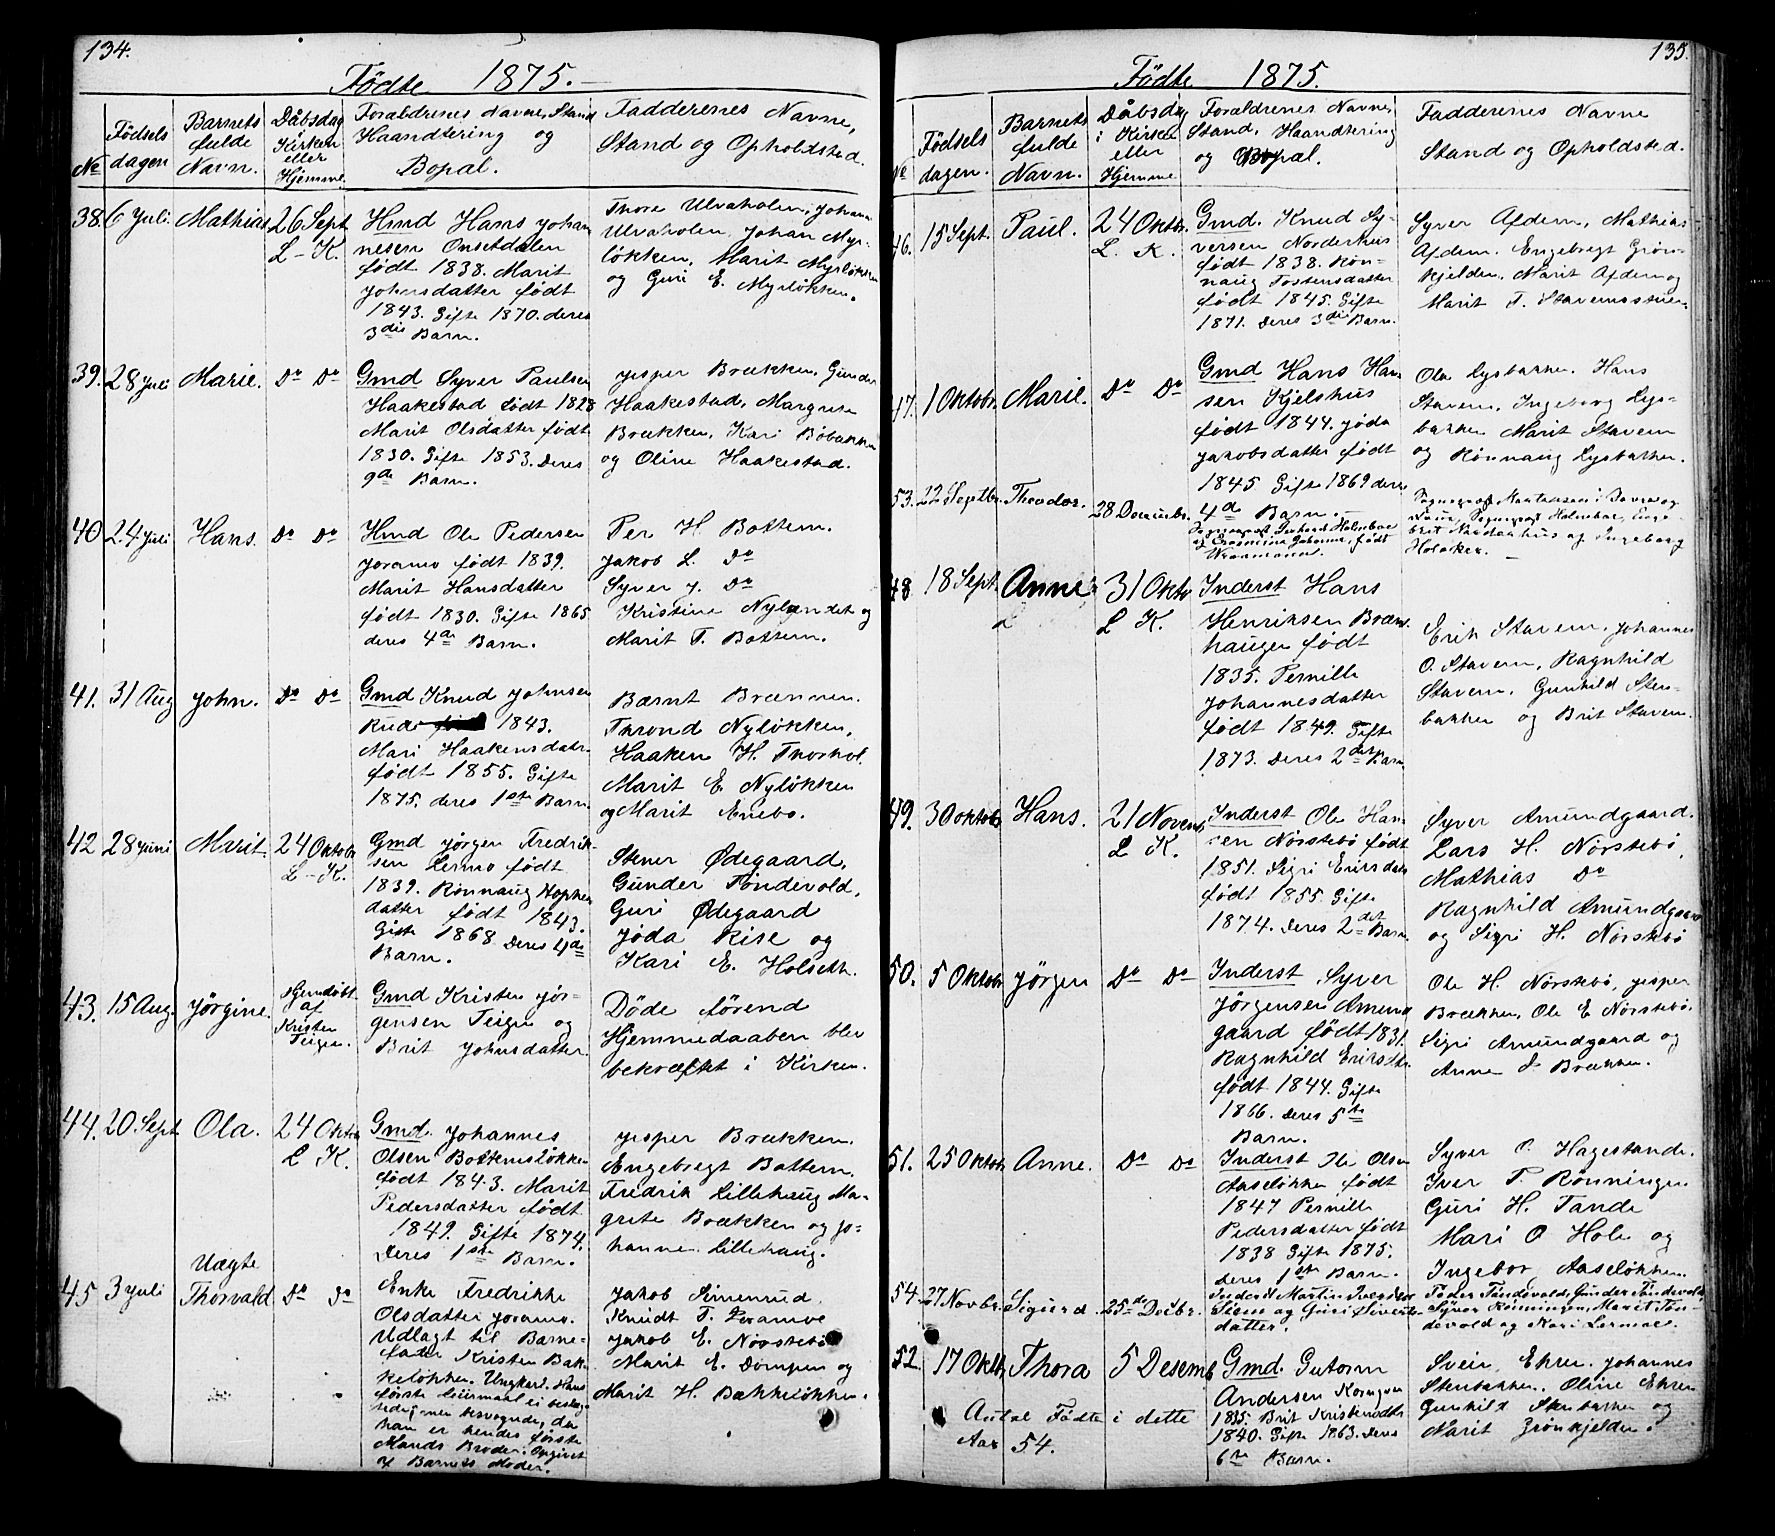 134.
Fødte 1875.
No
Fødsels
dagen
Barnets
fulde
Navn.
Dåbsdag
Kirken
eller
Hjemme.
Foraldrenes Navne, Stand
Haandtering og
Bopal.
Fadderenes Navne,
Stand og Opholdsted.
38. 6 Juli. Mathias 26 Sept
L - K.
Hmd Hans Johan
nesen Onsetdalen
født 1838. Marit
Johnsdatter født
1843. Gifte 1870. deres
3die Barn.
Thore Ulvaholen, Johan
Ulvaholen, Johan Myr-
løkken, Marit Myrløkken
og Guri E. Myrløkken.
39. 28 Juli Marie. Do Do
Gmd Syver Paulsen
Haakestad født 1828
Marit Olsdatter født
1830. Gifte 1853. Deres
9de Barn.
Jesper Brækken, Gunder
Haakestad, Margrete
Brækken, Kari Bøbakken
og Oline Haakestad.
40 24 Juli Hans. Do Do
Hmd Ole Pedersen
Joramo født 1839.
Marit Hansdatter
født 1830. Gifte 1865
deres 4de Barn.
Per H. Bottem.
Jakob L. Do
Syver J. Do
Kristine Nylændet og
Marit T. Bottem.
41. 31 Aug John. Do Do
Gmd Knud Johnsen
Rude 1843.
Mari Haakensdatr
født 1855. Gifte
1875. deres 1ste Barn
Bærnt Brænnen.
Thrond Nyløkken,
Haaken H. Thorhol.
Marit E. Nyløkken
og Marit Enebo.
42 28 Juni Marit. 24 Oktobr
L - K.
Gmd Jørgen Fredrik-
sen Lermo født
1839. Rønnaug Hophen
datter født 1843.
Gifte 1868 Deres 4de
Barn.
Stener Ødegaard,
Gunder Tøndevold,
Guri Ødegaard
Jøda Rise og
Kari E. Holseth.
43. 15 Aug. Jørgine.
Hjemdøbt
af
Kristen
Teigen.
Gmd Kristen Jør-
gensen Teigen og
Brit Johnsdatter
Døde førend
Hjemmedaaben blev
bekræftet i Kirken.
44. 20. Sept Ola. 24 Oktbr
L K.
Gmd. Johannes
Olsen Bottemsløkken
født 1843. Marit
Pedersdatter født
1849. Gifte 1874.
Deres 1ste Barn.
Jesper Brækken.
Engebregt Bottem,
Fredrik Lillehaug Ma-
grete Brækken og Jo-
hanne Lillehaug.
Uægte
45 3 Juli Thorvald Do Do
Enke Fredrikke
Olsdatter Joramo.
Udlagt til Barne-
fader Kristen Bak-
keløkken. Ungkarl. Hans
første Leiermaal ei besleg-
tede, men besvogrede, da
han er hendes første
Mands Broder. Opgivet
af Barnets Moder.
Jakob Simenrud.
Knudt T. Joramoe
Jakob E. Nørstebø
Marit E. Dompen og
Marit H. Bækkeløkken.
135.
Fødte 1875.
No
Fødsels
dagen.
Barnets
fulde
Navn.
Dåbsdag
i Kirken
eller
Hjemme
Foraldrenes Navne,
Stand, Haandtering
og Bopal.
Fadderenes Navne
Stand og Opholdsted.
46. 15 Sept. Paul. 24 Oktbr.
L. K.
Gmd. Knud Sy-
versen Norderhus
født 1838. Røn-
naug Tostensdatter
født 1845. Gifte
1871. Deres 3die Barn.
Syver Afdem, Mathias
Afdem. Engebregt Grøn-
kjelden, Marit Afdem og
Marit T. Stavemsstuen.
47. 1 Oktobr. Marie. Do Do
Gmd Hans Han
sen Kjelshus
født 1844. Jøda
Jakobsdatter født
1845 Gifte 1869 deres
4de Barn.
Ola Lysbakken. Hans
Stavem, Ingeborg Lys-
bakken Marit Stavem
og Rønnaug Lysbakken.
53. 22 Septbr. Theodor. 28 Decembr.
48 18 Sept. Anne. 31 Oktb
L K.
Inderst Hans
Henriksen Bræn-
haugen født
1835. Pernille
Johannesdatter
født 1849. Gifte
1873. Deres 2det Barn
Erik Stavem, Johannes
O. Stavem, Ragnhild
Stavem, Gunhild Sten-
bakken og Brit Stavem.
49. 3 Oktobr Hans. 21 Novemb
L K.
Inderst Ole Han
sen Nørstebø født
1851. Sigri Eriksdatr
født 1855. Gifte
1874. Deres 2det Barn
Syver Amundgaard.
Lars H. Nørstebø,
Mathias Do
Ragnhild Amundgaard
og Sigri H. Nørstebø
50. 5 Oktobr Jørgen Do Do
Inderst Syver
Jørgensen Amund
gaard født 1831.
Ragnhild Eriksdtr.
født 1844. Gifte
1866. Deres 5te
Barn.
Ole H. Nørstebø, Jesper
Brækken, Ole E Nørstebø.
Sigri Amundgaard og
Anne J Brækken.
51. 25 Oktobr Anne. Do Do
Inderst Ole Olsen
Aaseløkken født
1847 Pernille
Pedersdatter født
1838 Gifte 1875.
Deres 1ste Barn.
Syver P. Hagestande.
Iver T. Rønningen
Guri H. Tande
Mari O Hole og
Ingebor Aaseløkken.
54. 27 Novbr. Sigurd 25de Decbr.
datter.
Peder Tøndevold, Gunder Tøndevold,
Syver Rønningen, Marit Tøn-
devold og Kari Lermoe.
52. 17 Oktb Thora 5 Desemb
Gmd. Gutorm
Andersen Korsgven
1835. Brit Kristensdtr
1840. Gifte 1863. Deres
6te Barn.
Svein Ehren. Johannes
Stenbakken, Oline Ehren
Gunhild Stenbakken og
Marit Grønkjelden.
Antal Fødte i dette
Aar 54.